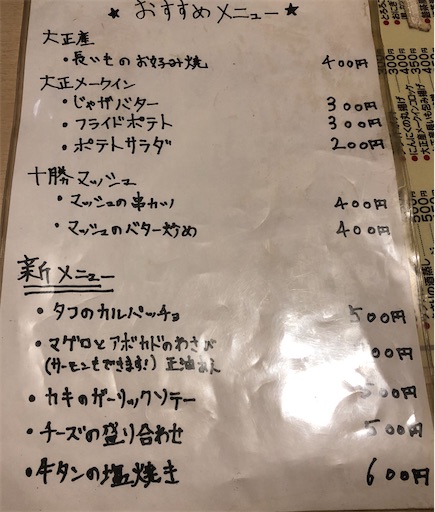 ★ おすすめメニュー ★
大正産
・長いものお好み焼 400円
大正メークイン
・じゃがバター 300円
・フライドポテト 300円
・ポテトサラダ 200円
十勝マッシュ
・マッシュの串カツ 400円
・マッシュのバター炒め 400円
新メニュー
・タコのカルパッチョ 500円
・マグロとアボカドのわさび 00円
(サーモンもできます!) 正油あえ
・カキのガーリックソテー 500円
・チーズの盛り合わせ 500円
・牛タンの塩焼き 600円
300円
400円
350円
450円
●にんにくの丸揚げ
●大正産メークインコロッケ
500円